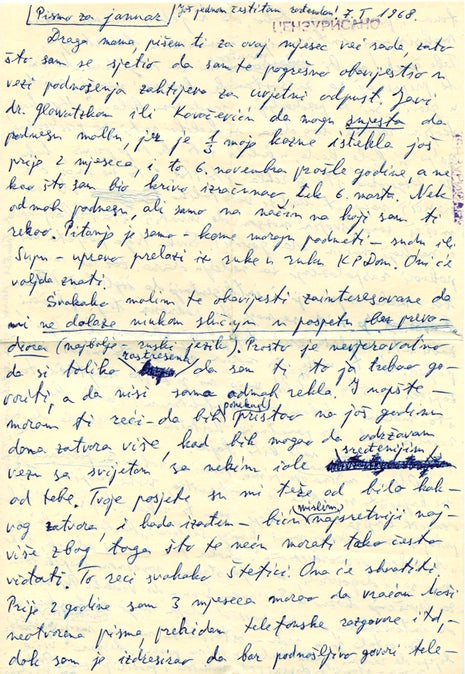 [Pismo za januar] Još jednom čestitam rođendan! 7. I 1968.
ЦЕНЗУРИСАНО
Draga mama, pišem ti za ovaj mjesec već sada, zato
što sam se sjetio da sam te pogrešno obavijestio u
vezi podnošenja zahtjeva za uvjetni odpust. Javi
dr. Glowatzkom ili Kovačeviću da mogu smjesta da
podnesu molbu, jer je 1/3 moje kazne istekla još
prije 2 mjeseca, i to 6. novembra prošle godine, a ne
kao što sam bio krivo izračunao, tek 6. marta. Nek
odmah podnesu, ali samo na način na koji sam ti
rekao. Pitanje je samo – kome moraju podneti – sudu ili
Supu – upravo prelazi iz ruke u ruku KPDom. Oni će
valjda znati.
Svakako molim te obavijesti zainteresovane da
mi ne dolaze nikom sličnim u posjetu bez prevo-
dioca (najbolje – ruski jezik). Prosto je nevjerovatno
da si toliko rastresena da sam ti to ja trebao go-
voriti, a da nisi sama odmah rekla. I uopšte –
moram ti reći – da bih ponekad pristao na još godinu
dana zatvora više, kad bih mogao da održavam
vezu sa svijetom sa nekim iole sređenijim
od tebe. Tvoje posjete su mi teže od bilo kak-
vog zatvora, i kada izađem – biću mislim najsretniji naj-
više zbog toga što te neću morati tako često
viđati. To reci svakako Štefici. Ona će shvatiti.
Prije 2 godine sam 3 mjeseca morao da vraćam
neotvorena pisma, prekidam telefonske razgovore itd,
dok sam je izdresirao da bar podnošljivo govori tele-